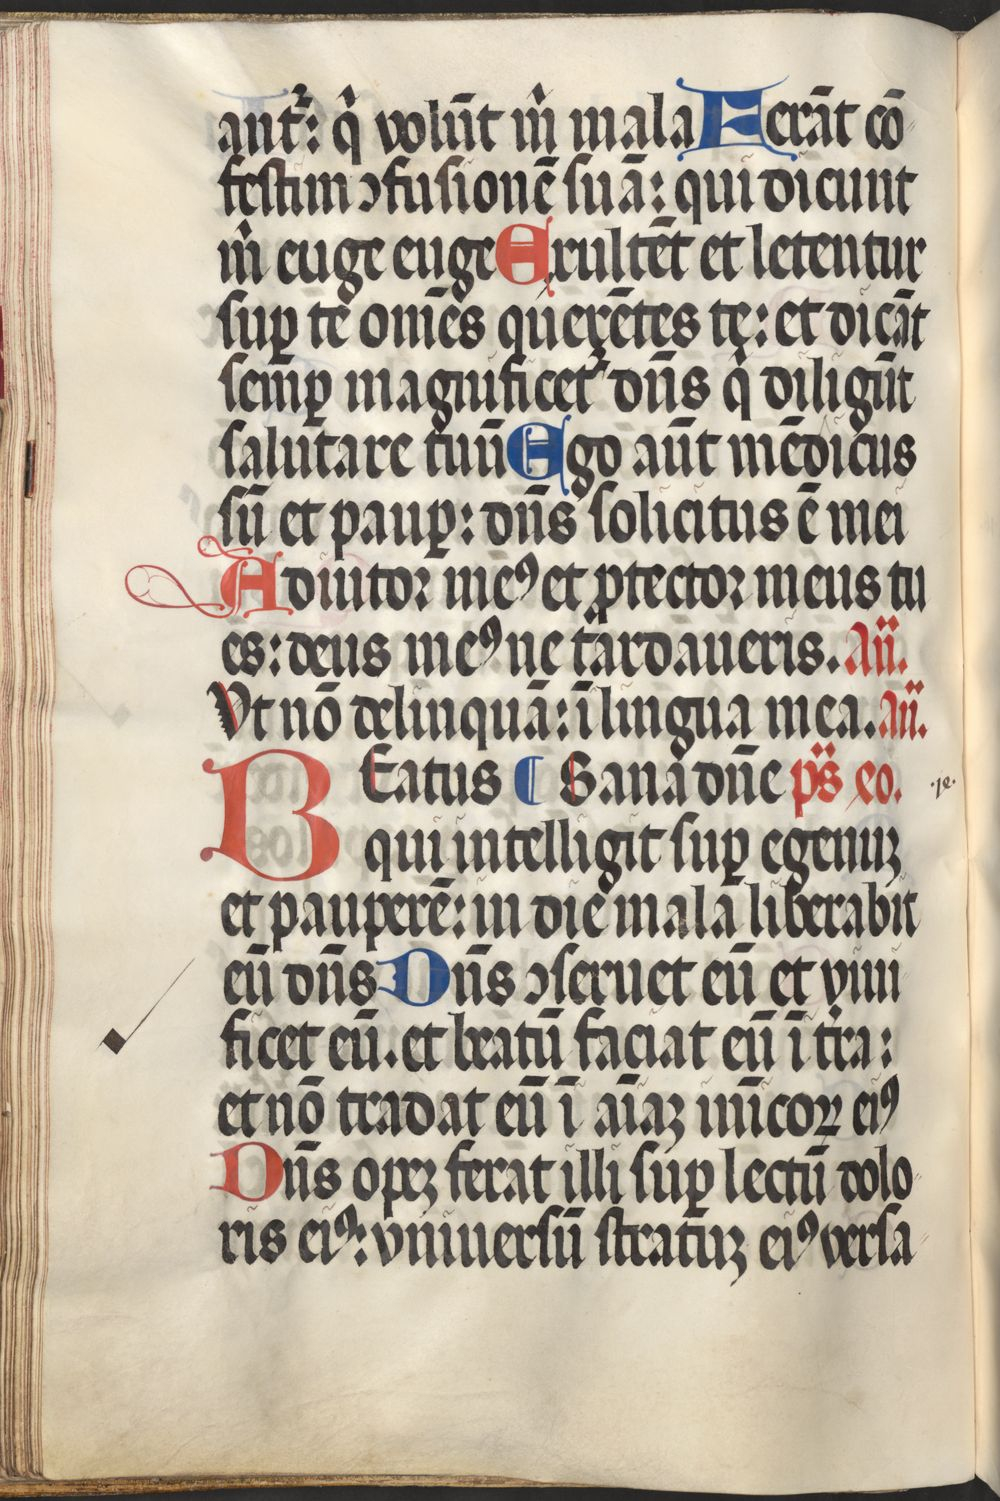 ant᷑: q̇ volūt m̑ mala Ferāt cō
festim ɔfusionē suā: qui dicunt
m̑ euge euge Exultēt et letentur
suꝑ te om̄es querētes te: et dicāt
semꝑ magnificet᷑ dn̄s q̇ diligūt
salutare tuū Ego aūt mēdicus
sū et pauꝑ: dn̄s solicitus ē mei
Adiutor meꝰ et ꝓtector meus tu
es: deus meꝰ ne tardaueris. Añ.
Vt nō delinquā: ī lingua mea. Añ.
BEatus ¶ Sana dn̄e ps̄ xo.
qui intelligit suꝑ egenuꝫ
et pauperē: in die mala liberabit
eū dn̄s Dn̄s ɔseruet eū et viui
ficet eū. et beatū faciat eū ī tr̄a:
et nō tradat eū ī aīaꝫ inīcoꝝ eiꝰ
Dn̄s opeꝫ ferat illi suꝑ lectū dolo
ris eiꝰ: vniuersū stratūꝫ eiꝰ versa